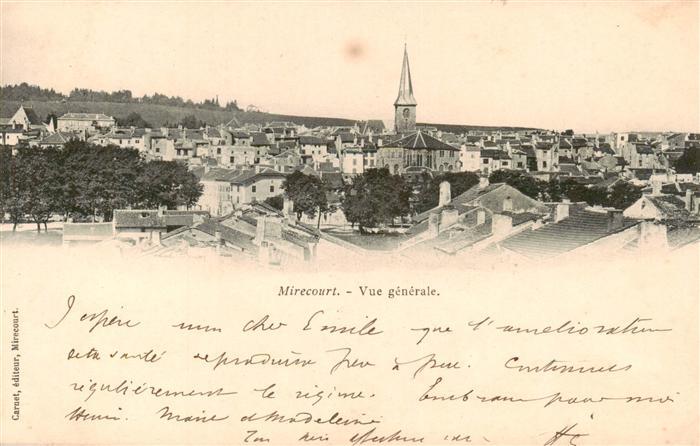 Mirecourt. - Vue générale.
Carnet, éditeur, Mirecourt.
J'espère mon cher Emile que l'amélioration
de ta santé se produira peu à peu. Continues
régulièrement le régime. Embrasse pour moi
Henri. Marie et Madeleine
Ton bien affectionné